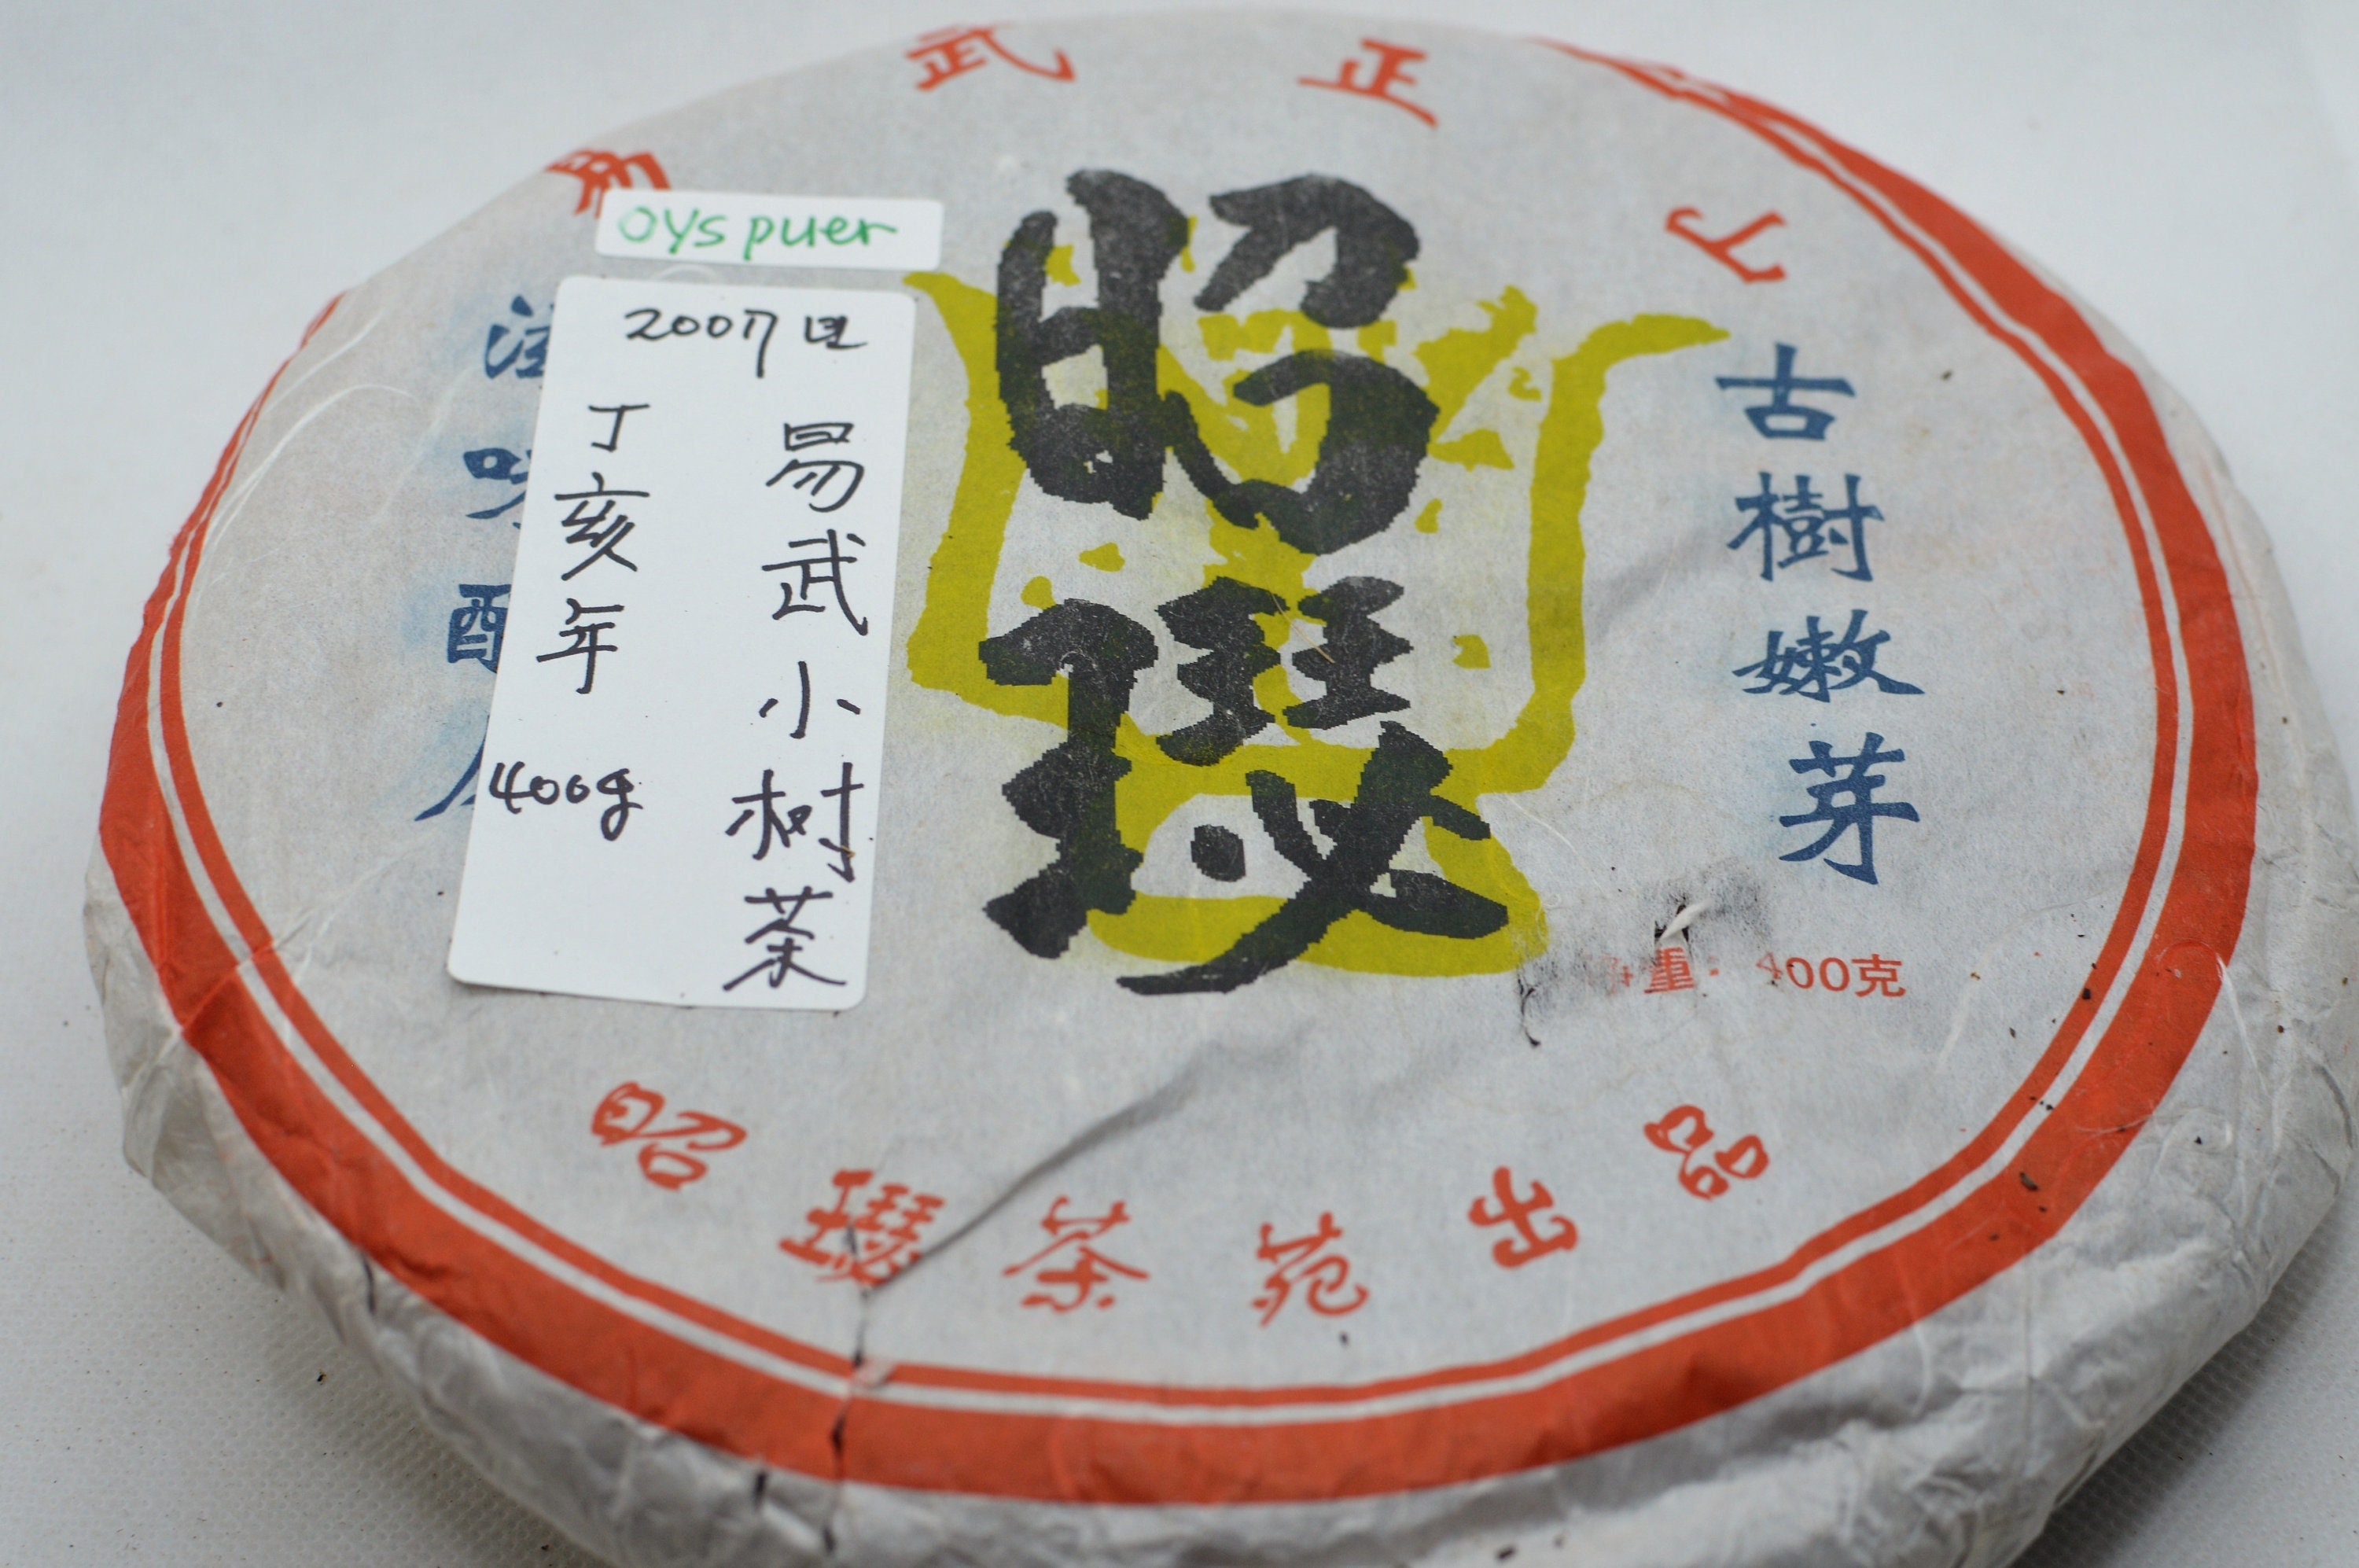 易武正丁
oys puer
2007년
易武小树茶
丁亥年
400g
昭璱
古樹嫩芽
净重:400克
昭璱茶苑出品